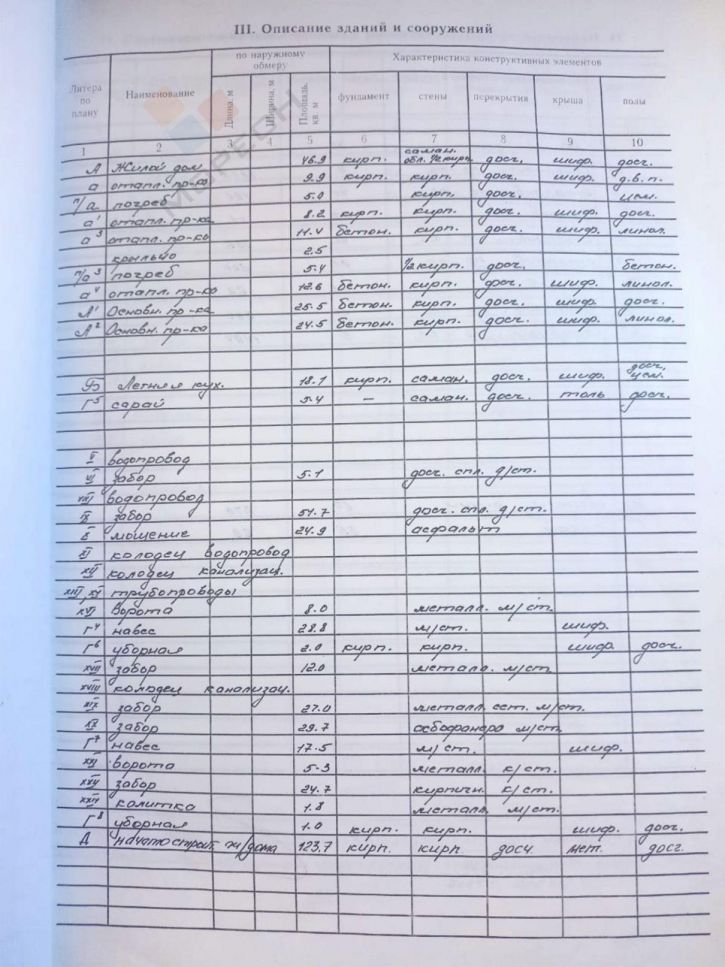 III. Описание зданий и сооружений
Литера по плану | Наименование | по наружному обмеру | Характеристика конструктивных элементов
Длина, м | Ширина, м | Площадь, кв. м | фундамент | стены | перекрытия | крыша | полы
1 2 3 4 5 6 7 8 9 10
А Жилой дом 46.9 кирп. саман. обл. 1/2 кирп. досч. шиф. досч.
а отапл. пр-ка 9.9 кирп. кирп. досч. шиф. д.в.п.
п/а погреб 5.0 кирп. досч. цем.
а¹ отапл. пр-ка 8.2 кирп. кирп. досч. шиф. досч.
а³ отапл. пр-ка 11.4 бетон. кирп. досч. шиф. линол.
крыльцо 2.5
п/а³ погреб 5.4 1/2 кирп. досч. бетон.
а⁴ отапл. пр-ка 12.6 бетон. кирп. досч. шиф. линол.
А¹ Основн. пр-ка 25.5 бетон. кирп. досч. шиф. досч.
А² Основн. пр-ка 24.5 бетон. кирп. досч. шиф. линол.
Б Летняя кух. 18.1 кирп. саман. досч. шиф. досч. цем.
Г⁵ сарай 5.4 — саман. досч. толь досч.
V водопровод
VI забор 5.1 досч. спл. д/ст.
VIII водопровод
IX забор 51.7 досч. спл. д/ст.
X мощение 24.9 асфальт
XI колодец водопровод
XII колодец канализац.
XIII, XV трубопроводы
XVI Ворота 8.0 металл. м/ст.
Г⁴ навес 28.8 м/ст. шиф.
Г⁶ уборная 2.0 кирп. кирп. шиф. досч.
XVII забор 12.0 металл. м/ст
XVIII колодец канализац.
XIX забор 27.0 металл. сет. м/ст.
XX забор 29.7 асбофанера м/ст.
Г⁷ навес 17.5 м/ст. шиф.
XXI ворота 5.3 металл. к/ст.
XXV забор 24.7 кирпичн. к/ст.
XXIV калитка 1.8 металл. м/ст.
Г⁸ уборная 1.0 кирп. кирп. шиф. досч.
Д начатострит ж/дома 123,7 кирп. кирп досч мет. досг.